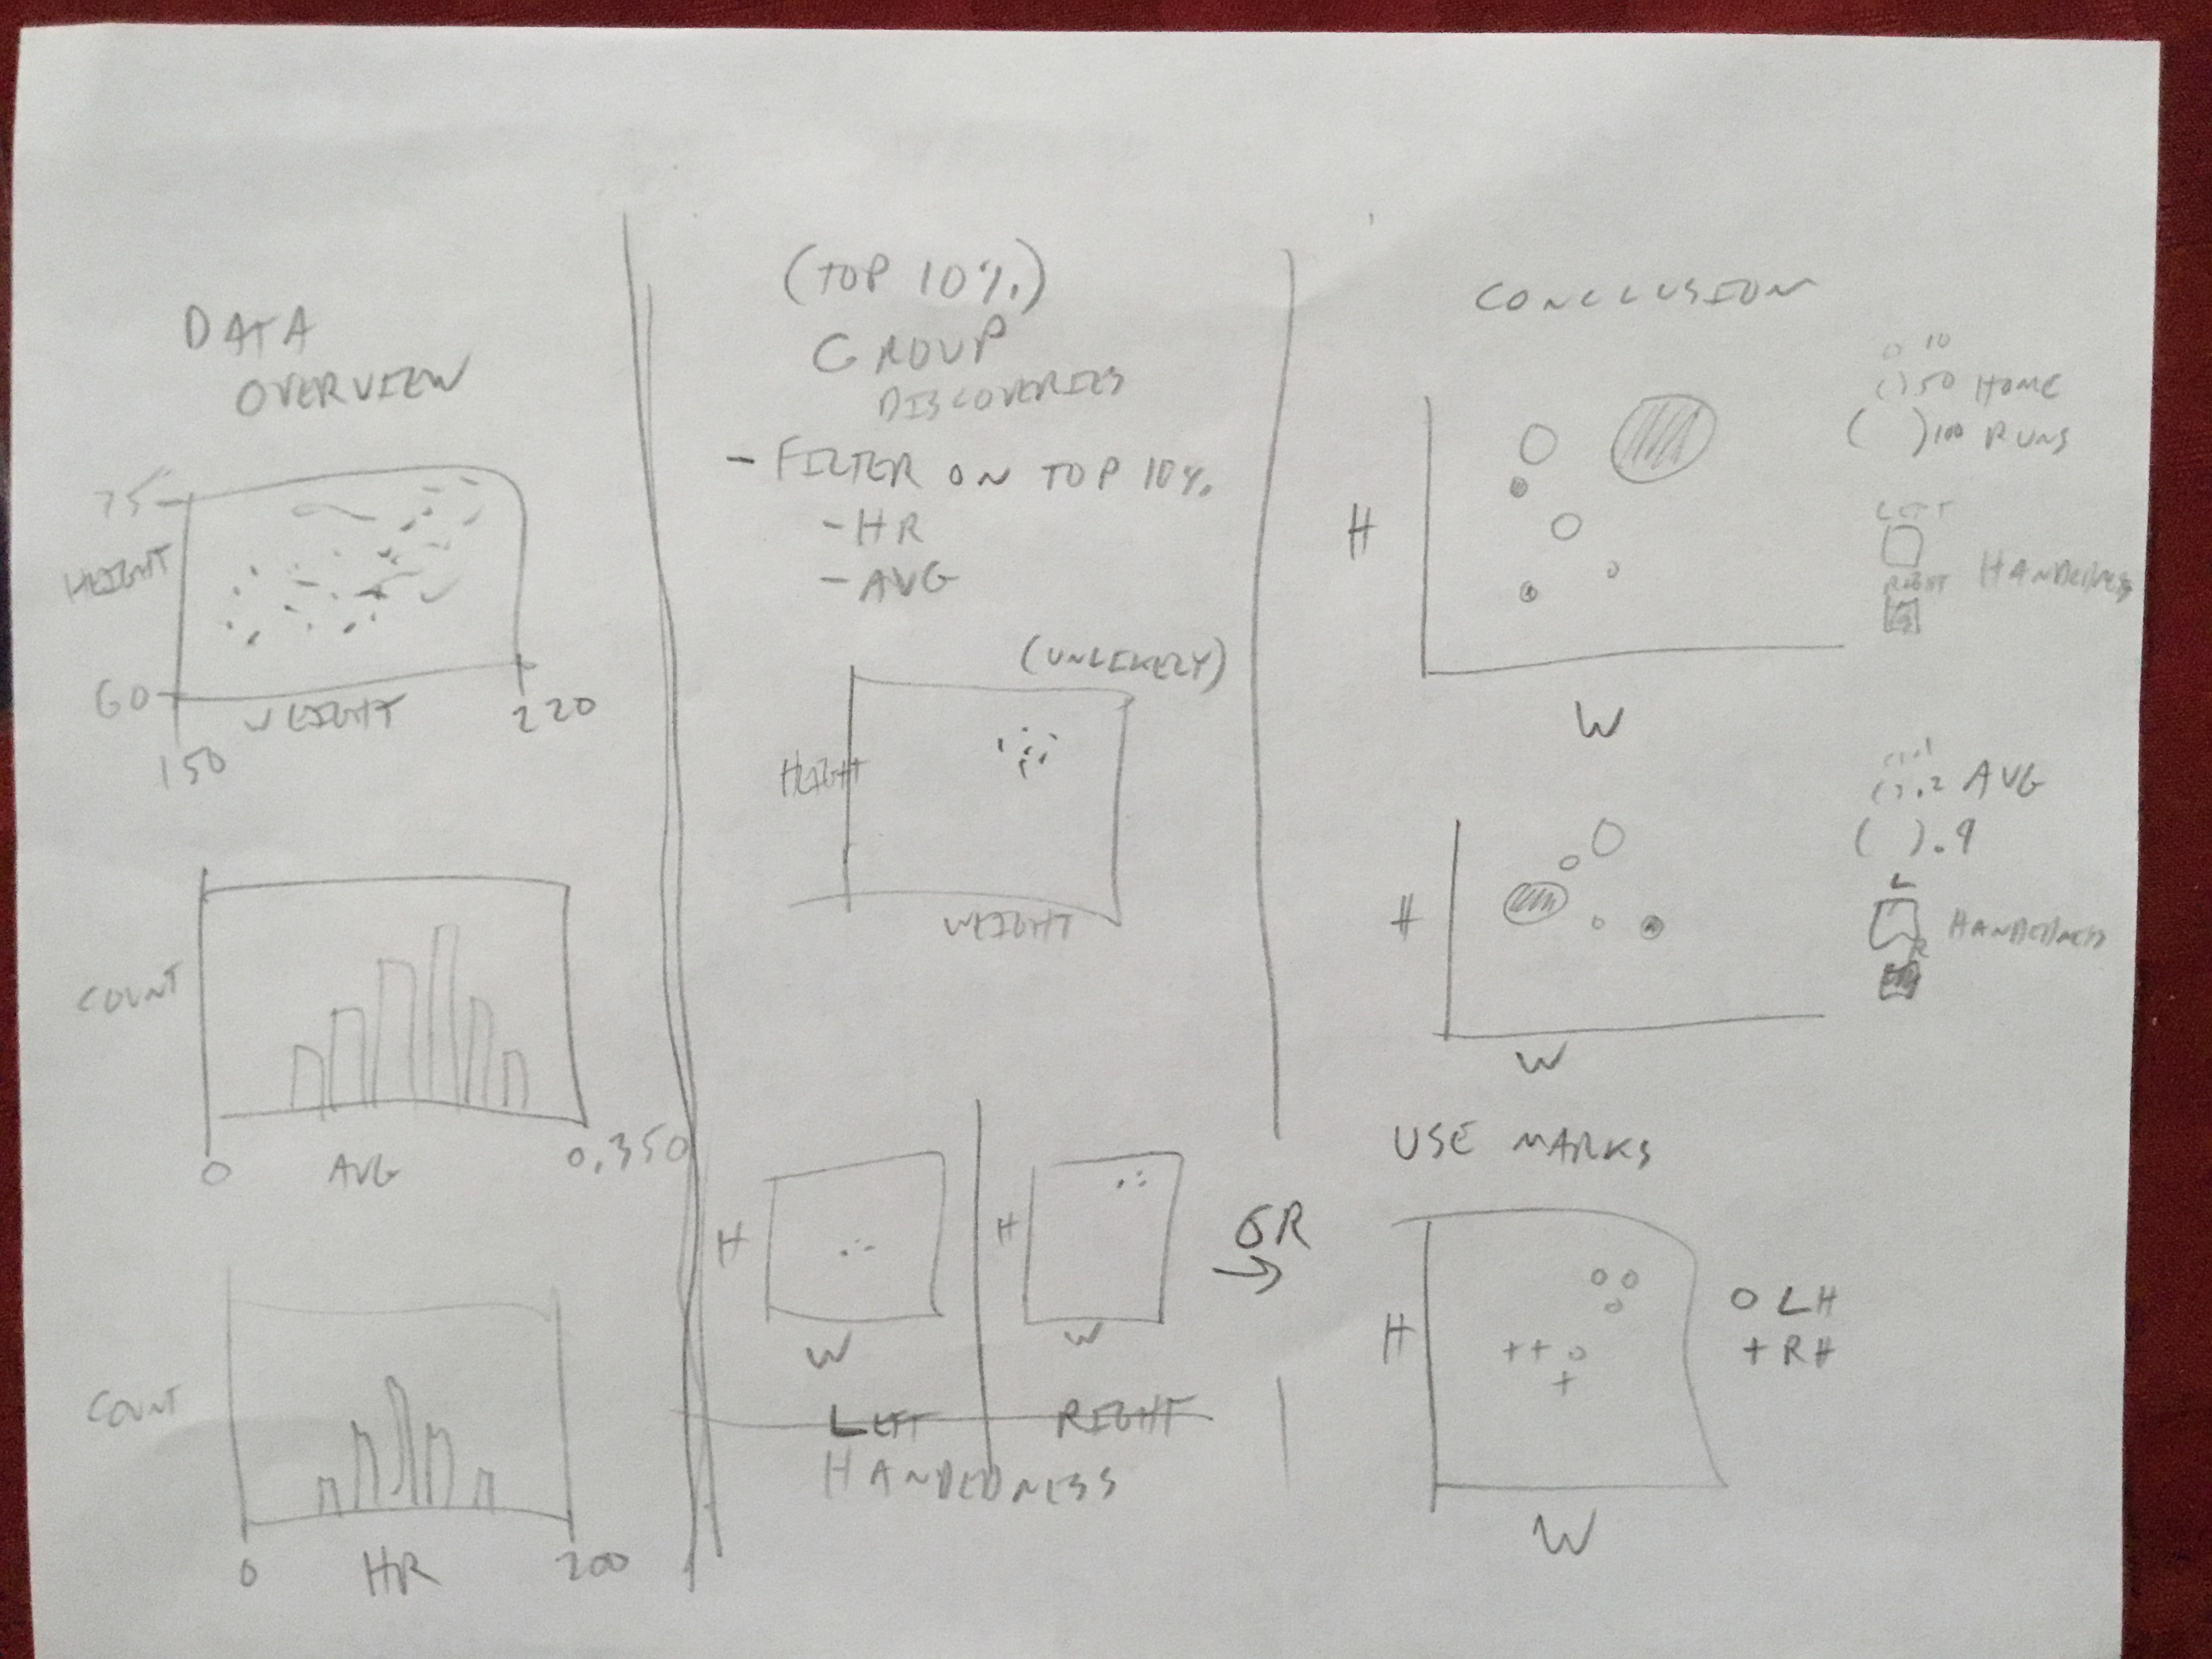 DATA
OVERVIEW
75
HEIGHT
60
WEIGHT
150
220
COUNT
0
AVG
0.350
COUNT
0
HR
200
(TOP 10%)
GROUP
DISCOVERIES
- FILTER ON TOP 10%
- HR
- AVG
(UNLIKELY)
HEIGHT
WEIGHT
H
W
H
W
LEFT
RIGHT
HANDEDNESS
OR
CONCLUSION
10
50 HOME
100 RUNS
LEFT
RIGHT
HANDEDNESS
H
W
.2 AVG
L
HANDEDNESS
R
H
W
USE MARKS
H
W
O LH
+ RH